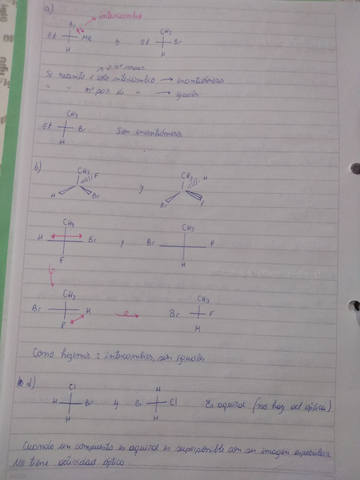 a)
Br → intercambio
Et Me y Et CH3 Br
H H
o nº impar
Si realizo 1 solo intercambio → enantiómeros
" " nº par de " → iguales
CH3
Et Br Son enantiómeros
H
b) CH3 F y CH3 H
H Br Br F
CH3 CH3
H Br y Br F
F H
CH3 CH3
Br H → Br F
F H
Como hicimos 2 intercambios son iguales
d) Cl H
H Br y Br Cl Es aquiral (no hay act óptica)
H H
Cuando un compuesto es aquiral es superponible con su imagen especular
No tiene actividad óptica